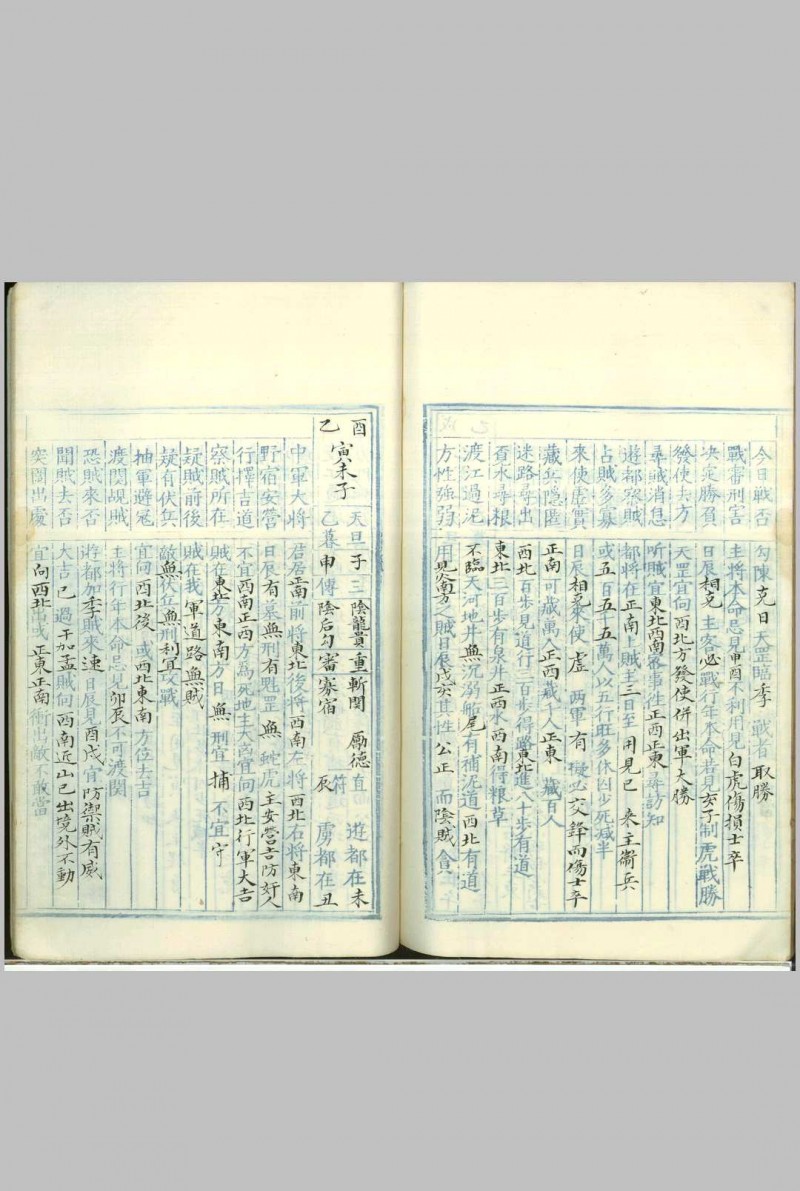 今日戰否 勾陳克日天罡臨季戰者取勝
戰審刑害 主將本命忌見甲酉不利用見白虎傷損士卒
決定勝負 日辰相克主客必戰行年本命若見亥子制虎戰勝
發使去方 天罡宜向西北方發使併出軍大勝
尋賊消息 所賊宜東北西南客事往正西正東尋訪知
遊都察賊 都將在正南賊主三日至用見巳來主衝兵
占賊多寡 或五百五十五萬人以五行旺多休囚少死減半
來使虛實 日辰相克來使虛兩軍有擬必交鋒而傷士卒
藏兵隱匿 正南可藏萬人正西藏千人正東藏百人
迷路尋出 西北百步見道行三百步得路東北進八十步有道
百水尋根 東北三百步有泉井正西水西南得粮草
渡江過泥 不臨天河地井無沉溺船尾有補泥道西北有道
方性強弱 用見南方之賊日辰戊亥其性公正而陰賊貪
乙酉 寅未子 天旦子三陰龍貴重斬関勵德直遊都在未
乙暮申傳陰后勾審寡宿符辰虜都在丑
中軍大將 君居正南前將東北後將西南左將西北右將東南
野宿安營 日辰有墓無刑有魁罡無蛇虎主安營吉防奸人
行擇吉道 不宜西南正西方為死地主大凶宜向西北行軍大吉
察賊所在 賊在東北方東南方日無刑宜捕不宜守
疑賊前後 賊在我軍道路無賊
疑有伏兵 敵無伏兵無刑利宜攻戰
抽軍避冦 宜向酉北後或西北東南方位去吉
渡関覘賊 主將行年本命忌見卯辰不可渡関
恐賊來否 遊都加季賊來速日辰見酉戌宜防禦賊有威
聞賊去否 大吉已過干加孟賊向西南近山已出境外不動
突圍出處 宜向西北出或正東正南衝出敵不敢當